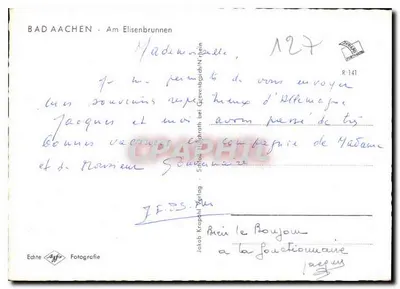 BAD AACHEN - Am Elisenbrunnen
127
R 141
Mademoiselle,
Je me permets de vous envoyer
mes souvenirs respectueux d'Allemagne
Jacques et moi avons passé de très
bonnes vacances en compagnie de Madame
et de Monsieur
Jakob Krapohl Verlag - Schloß
Bien le Bonjour
a la fonctionnaire
Jacques
Echte Agfa Fotografie
CPARAMA